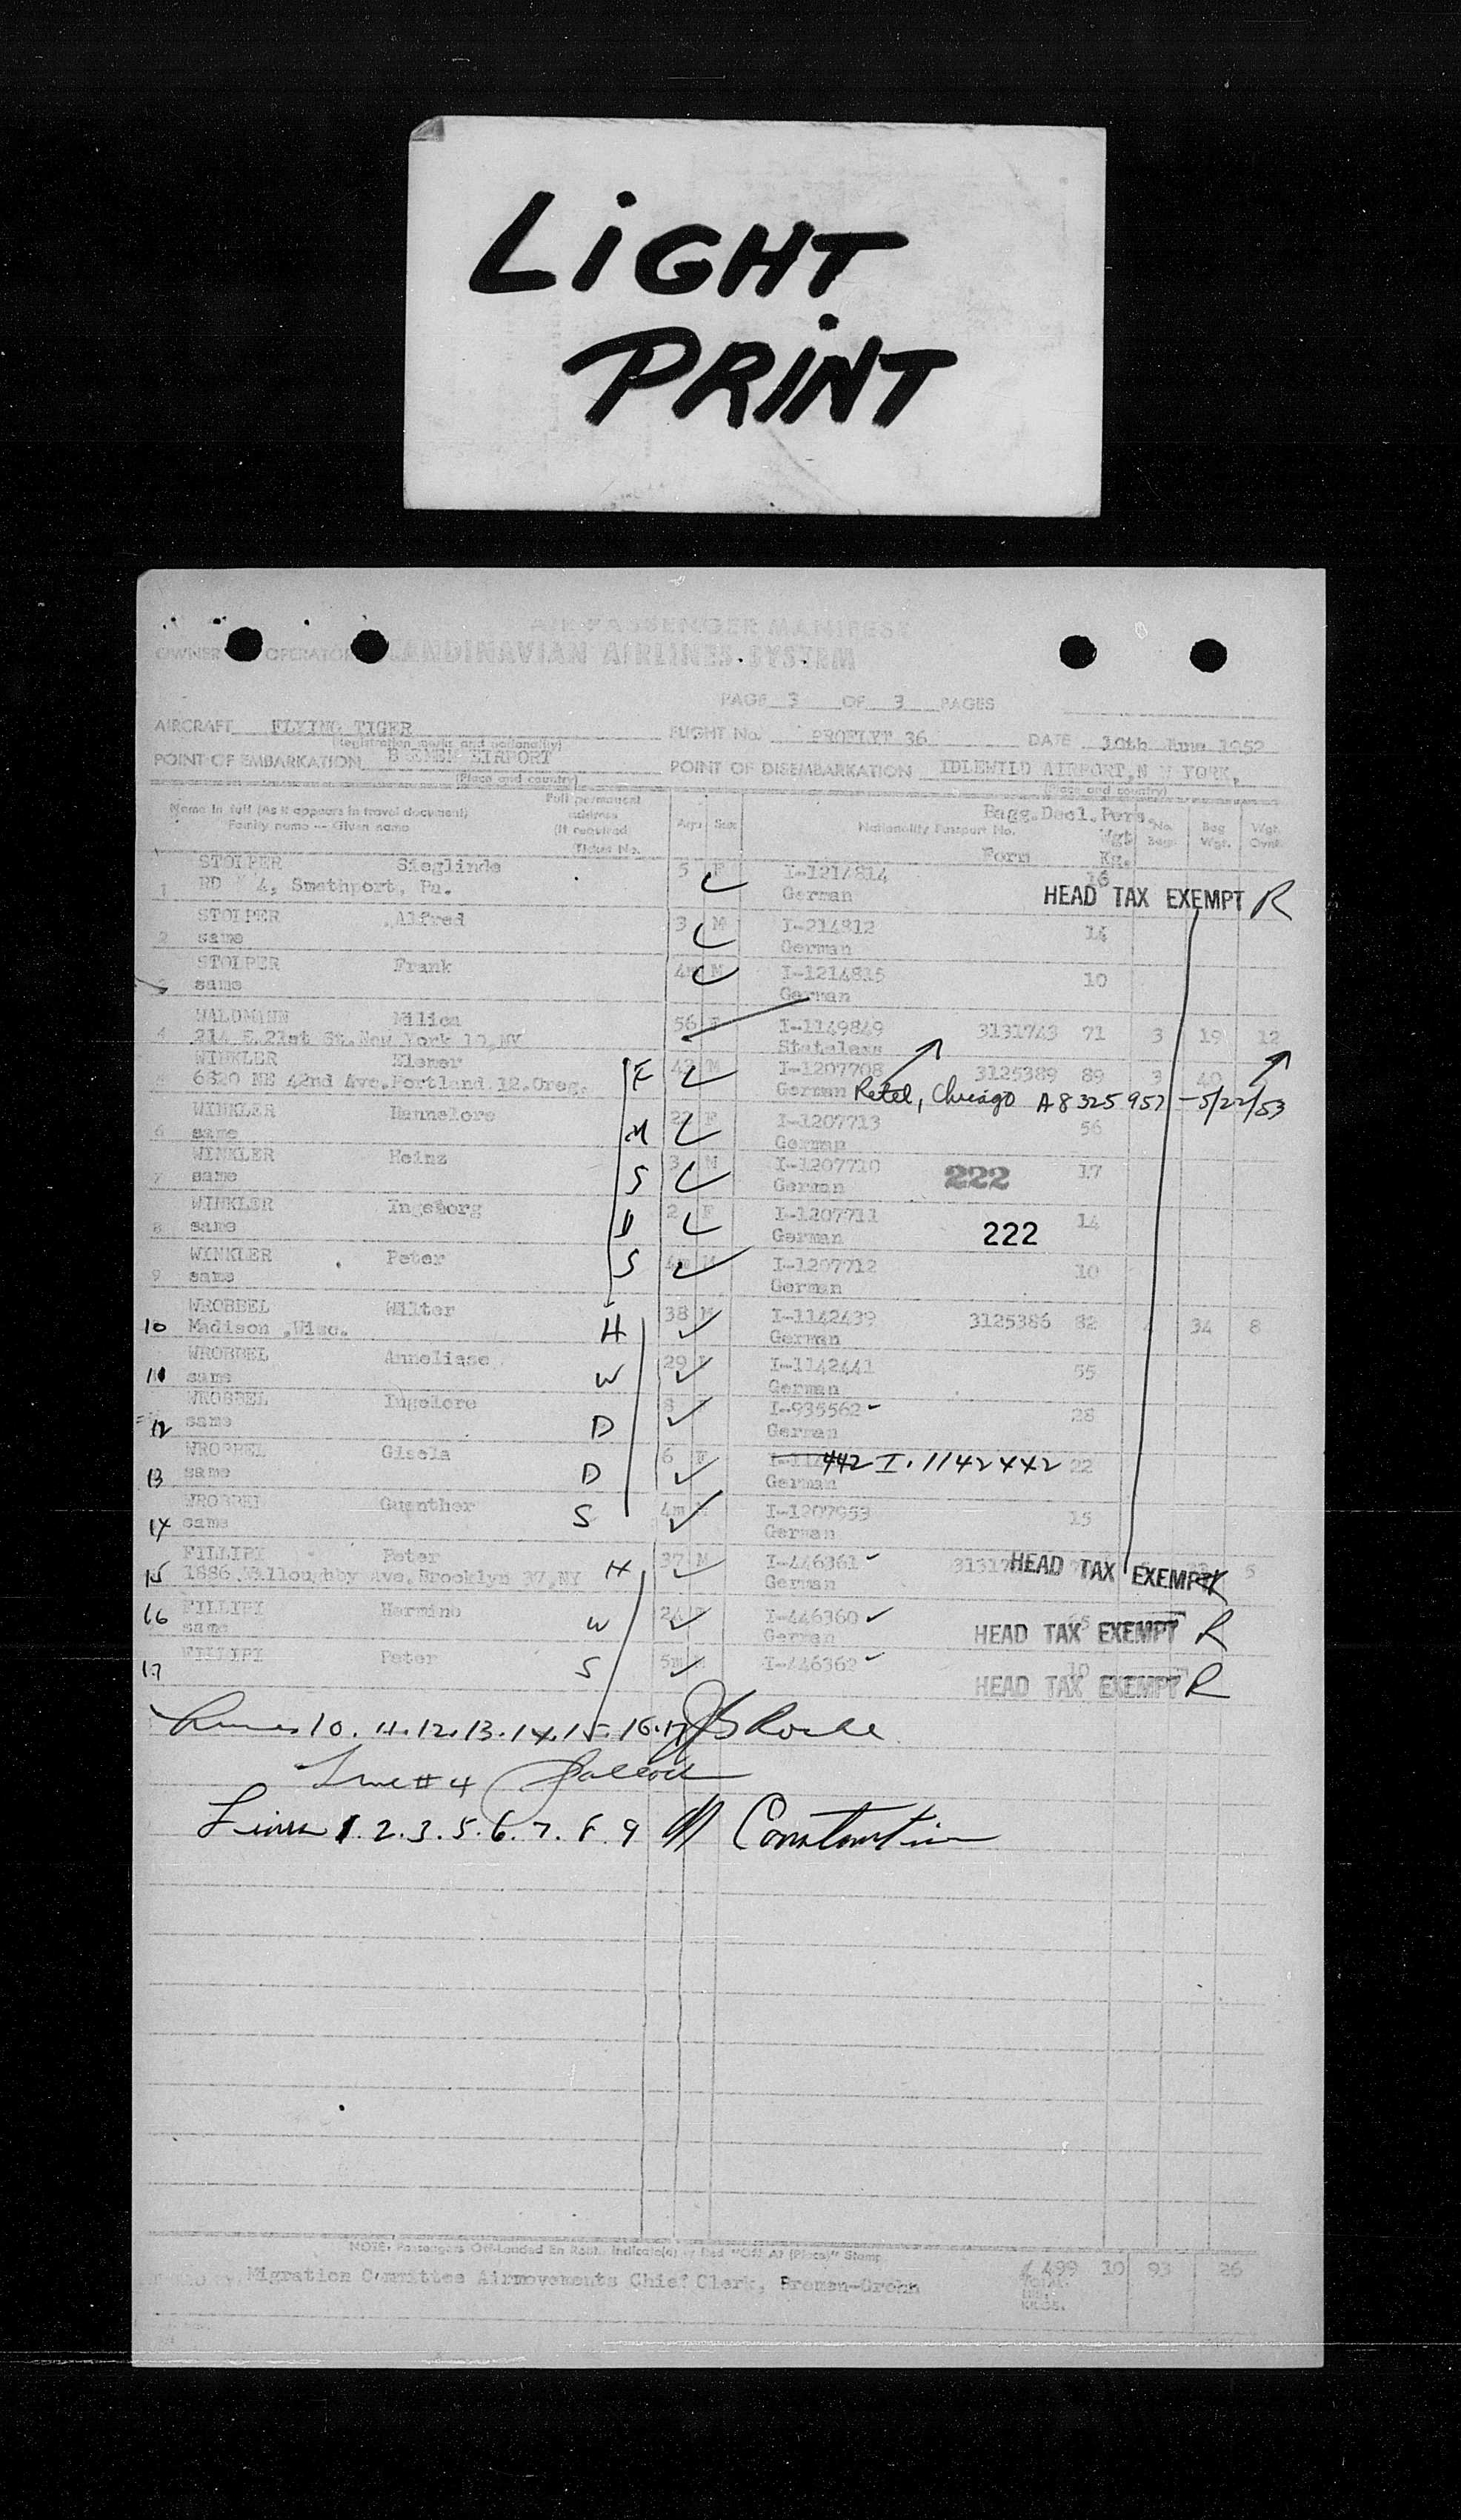 LiGHT
PRINT
AIR PASSENGER MANIFEST
OWNER OPERATOR SCANDINAVIAN AIRLINES SYSTEM
PAGE 3 OF 3 PAGES
AIRCRAFT FLYING TIGER FLIGHT No. PROFLYT 36 DATE 10th June 1952
(Registration marks and nationality)
POINT OF EMBARKATION BREMEN AIRPORT POINT OF DISEMBARKATION IDLEWILD AIRPORT, N W YORK,
(Place and country) (Place and country)
Name in full (As it appears in travel document) Full permanent address Age Sex Nationality Passport No. Bagg. Decl. Pers. No. Bag Wgt.
Family name -- Given name (If required Form Wgt Kg. Bags Wgt. Ovwt.
Ticket No.
STOLPER Sieglinde 5 F I-1214814 16
1 RD # 4, Smethport, Pa. German HEAD TAX EXEMPT R
STOLPER Alfred 3 M I-214812 14
2 same German
STOLPER Frank 4m M I-1214815 10
3 same German
WALDMANN Milica 56 F I-1149849 3131743 71 3 19 12
4 214 E.21st St.New York 10,NY Stateless
WINKLER Elemer F 42 M I-1207708 3125389 89 3 40
5 6820 NE 42nd Ave.Portland 12.Oreg. German Retel, Chicago A8325957 - 5/22/53
WINKLER Hannelore M 22 F I-1207713 56
6 same German
WINKLER Heinz S 3 M I-1207710 222 17
7 same German
WINKLER Ingeborg D 2 F I-1207711 14
8 same German 222
WINKLER Peter S 4m M I-1207712 10
9 same German
WROBBEL Wilter H 38 M I-1142439 3125386 82 4 34 8
10 Madison ,Wisc. German
WROBBEL Anneliese W 29 F I-1142441 55
11 same German
WROBBEL Ingelore D 8 I-935562 28
12 same German
WROBBEL Gisela D 6 F 442 I.1142442 22
13 same German
WROBBEL Guenther S 4m M I-1207953 15
14 same German
FILLIPI Peter H 37 M I-446361 HEAD TAX EXEMPT R 5
15 1886 Willoughby Ave.Brooklyn 37,NY German
16 FILLIPI Hermine W 24 F I-446360 HEAD TAX EXEMPT R
same German
17 FILLIPI Peter S 5m M I-446362 10 HEAD TAX EXEMPT R
Lines 10. 11. 12. 13. 14. 15 = 16. 17 Roche
Line # 4
Lines 1. 2. 3. 5. 6. 7. 8. 9 Constantin
NOTE: Passengers Off-Loaded En Route Indicate(d) by Red "Off At (Place)" Stamp
Migration Committee Airmovements Chief Clerk, Bremen-Grohn 499 10 93 26
TOTAL
KILOS.